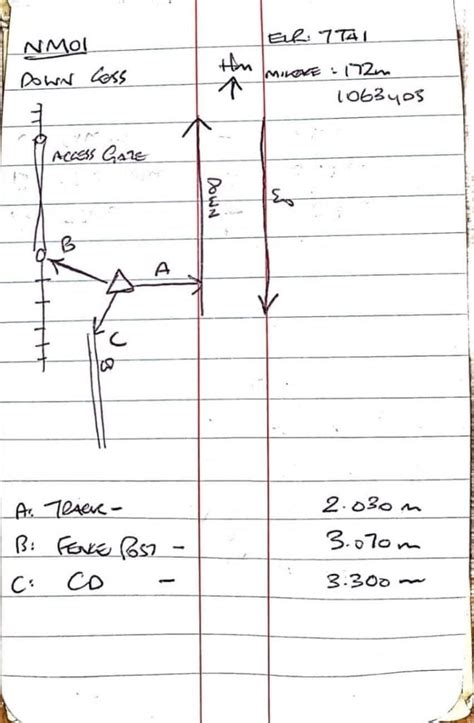 NM01
ELR: 7TA1
DOWN CESS
MILEAGE: 172m
1063yds
ACCESS GATE
DOWN
B
A
C
A: TRACK - 2.030 m
B: FENCE POST - 3.070 m
C: CD - 3.300 m